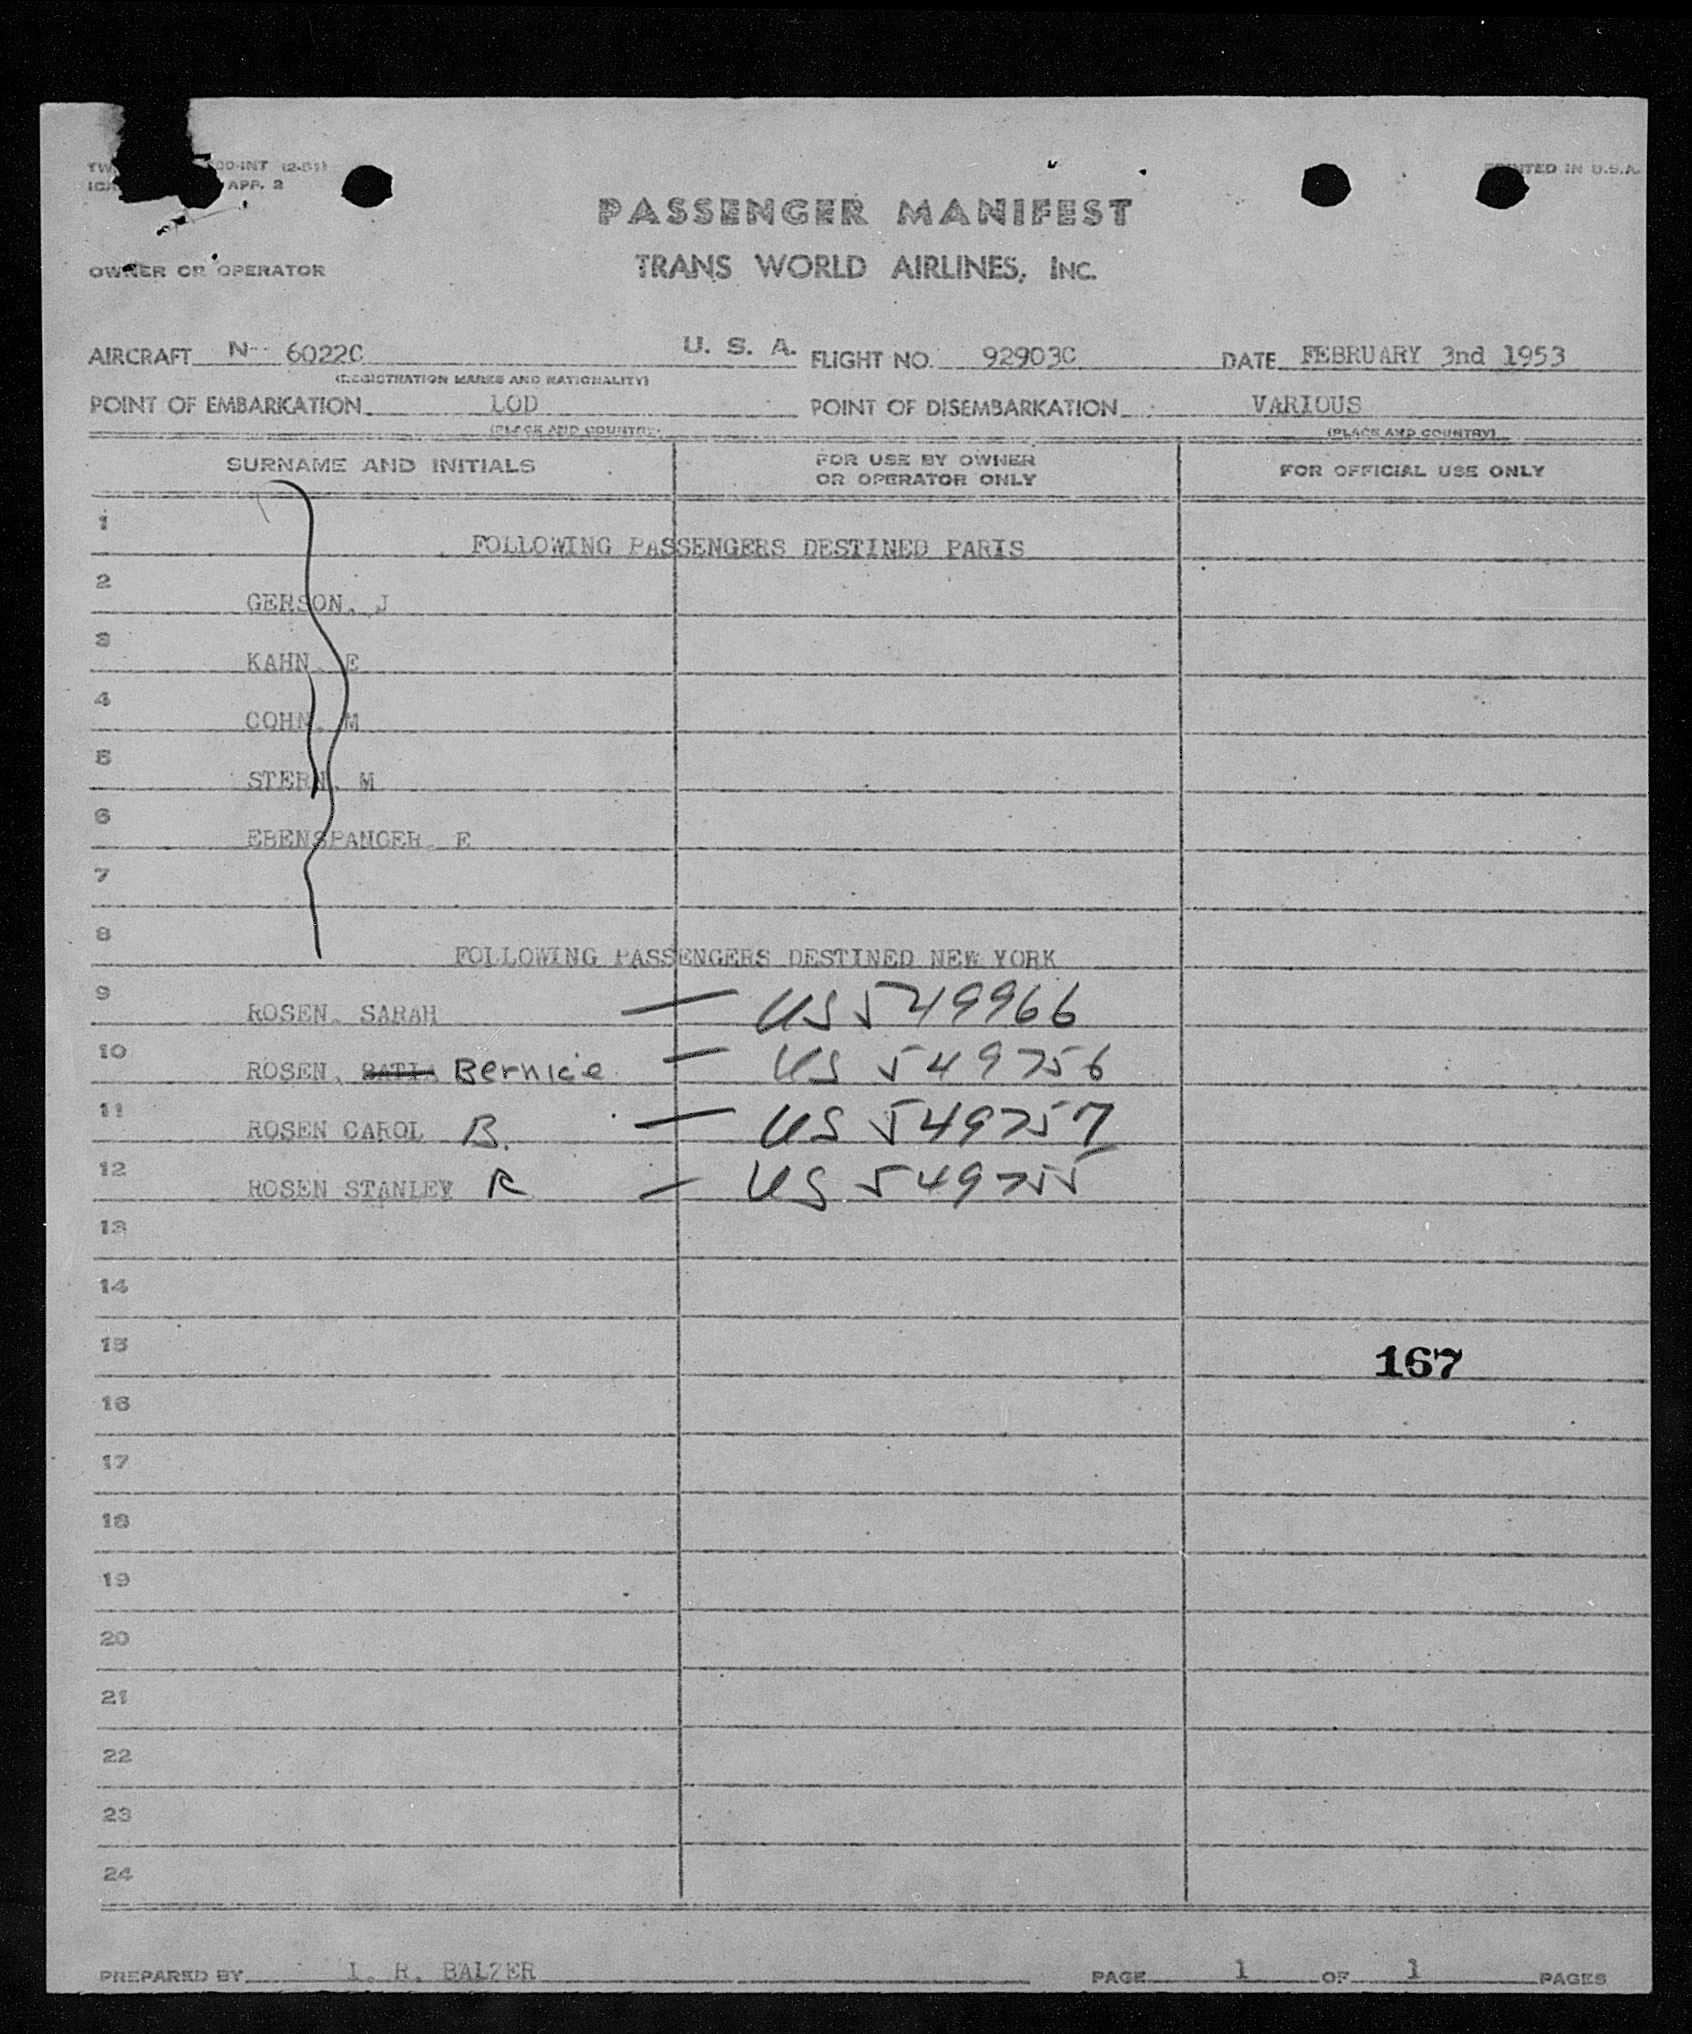 00-INT (2-51)
APP. 2
PRINTED IN U.S.A.
PASSENGER MANIFEST
OWNER OR OPERATOR
TRANS WORLD AIRLINES, INC.
AIRCRAFT N- 6022C U. S. A. FLIGHT NO. 92903C DATE FEBRUARY 3nd 1953
(REGISTRATION MARKS AND NATIONALITY)
POINT OF EMBARKATION LOD POINT OF DISEMBARKATION VARIOUS
(PLACE AND COUNTRY) (PLACE AND COUNTRY)
SURNAME AND INITIALS FOR USE BY OWNER OR OPERATOR ONLY FOR OFFICIAL USE ONLY
1 FOLLOWING PASSENGERS DESTINED PARIS
2 GERSON, J
3 KAHN, E
4 COHN, M
5 STERN, M
6 EBENSPANGER, E
7
8 FOLLOWING PASSENGERS DESTINED NEW YORK
9 ROSEN, SARAH — US 549966
10 ROSEN, Bernice — US 549756
11 ROSEN CAROL B. — US 549757
12 ROSEN STANLEY R — US 549755
13
14
15 167
16
17
18
19
20
21
22
23
24
PREPARED BY I. R. BALZER PAGE 1 OF 1 PAGES